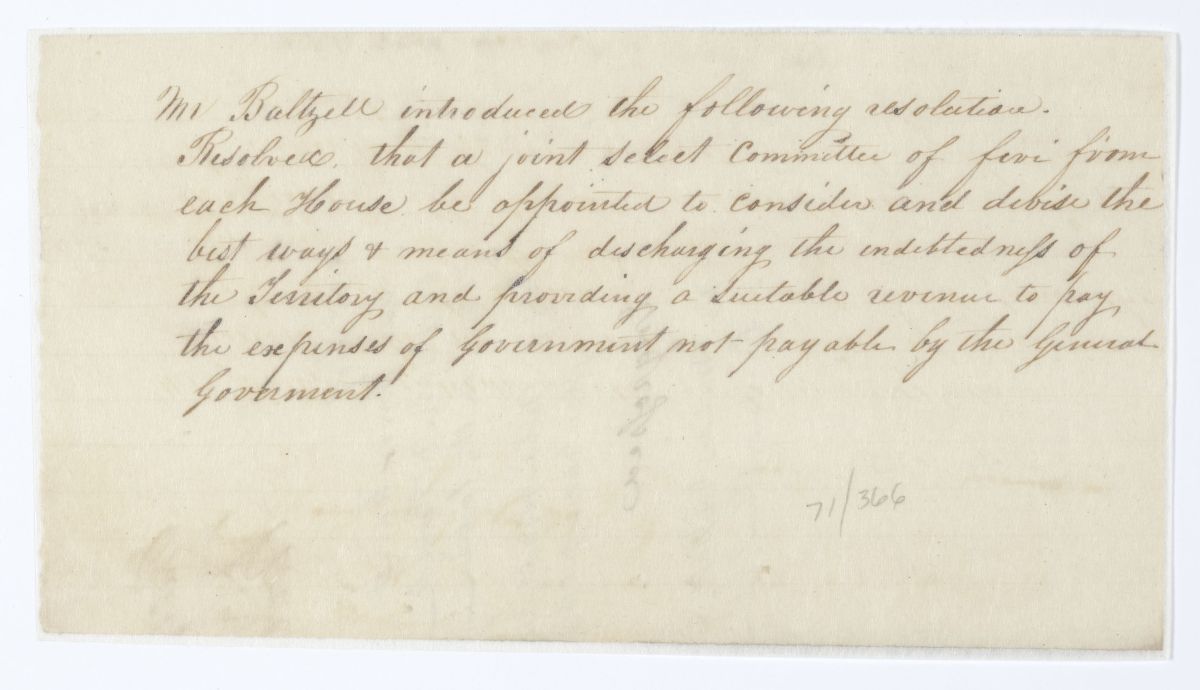 Mr Baltzell introduced the following resolution.
Resolved. that a joint select Committee of five from
each House be appointed to consider and devise the
best ways & means of discharging the indebtedness of
the Territory and providing a suitable revenue to pay
the expenses of Government not payable by the General
Goverment.
71/366